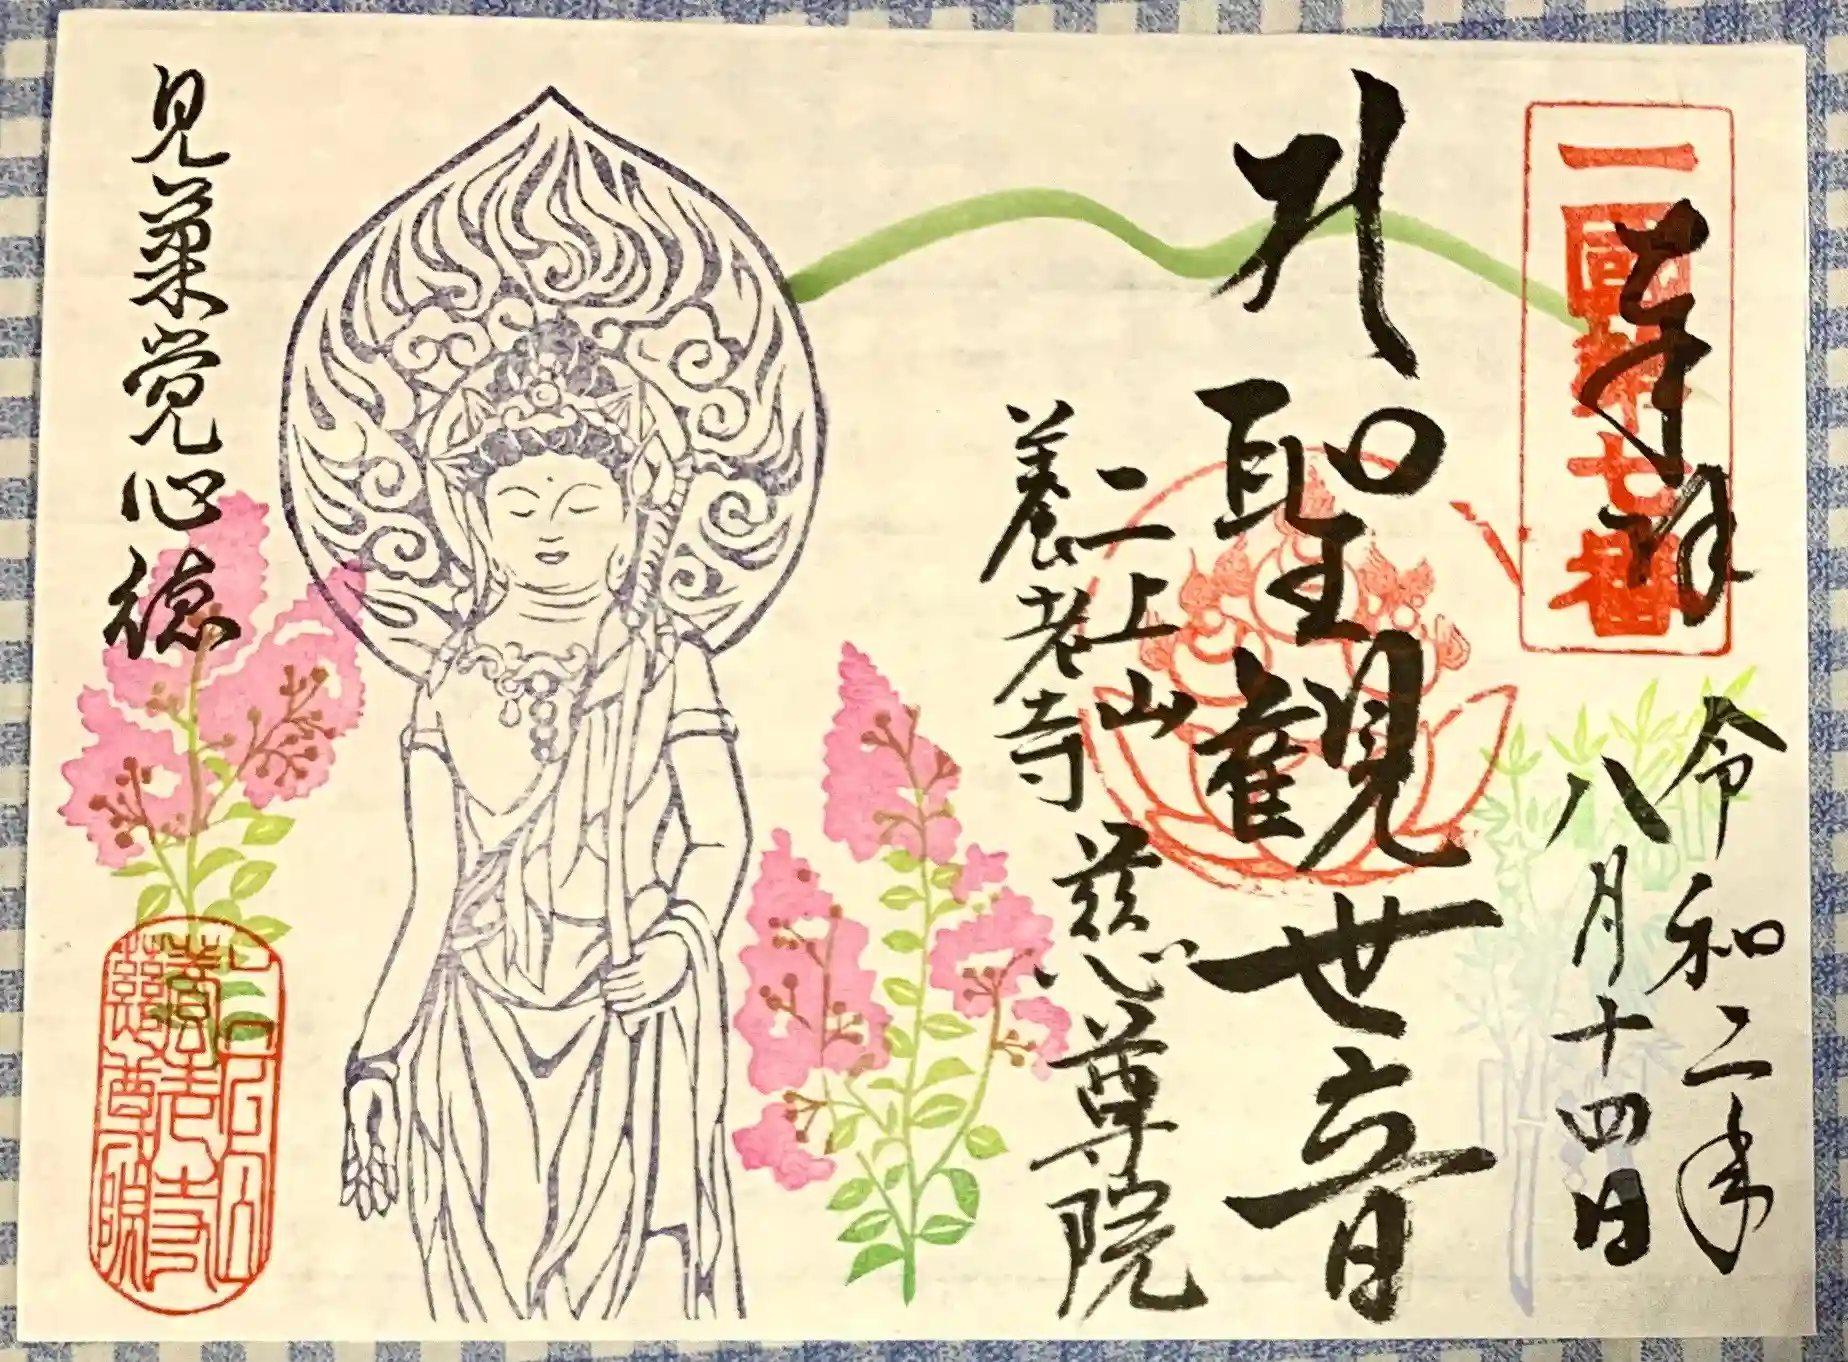 一國第七番
奉拝
令和二年
八月十四日
聖観世音
二上山
養老寺
慈尊院
見 覚心徳
養老寺
慈尊院